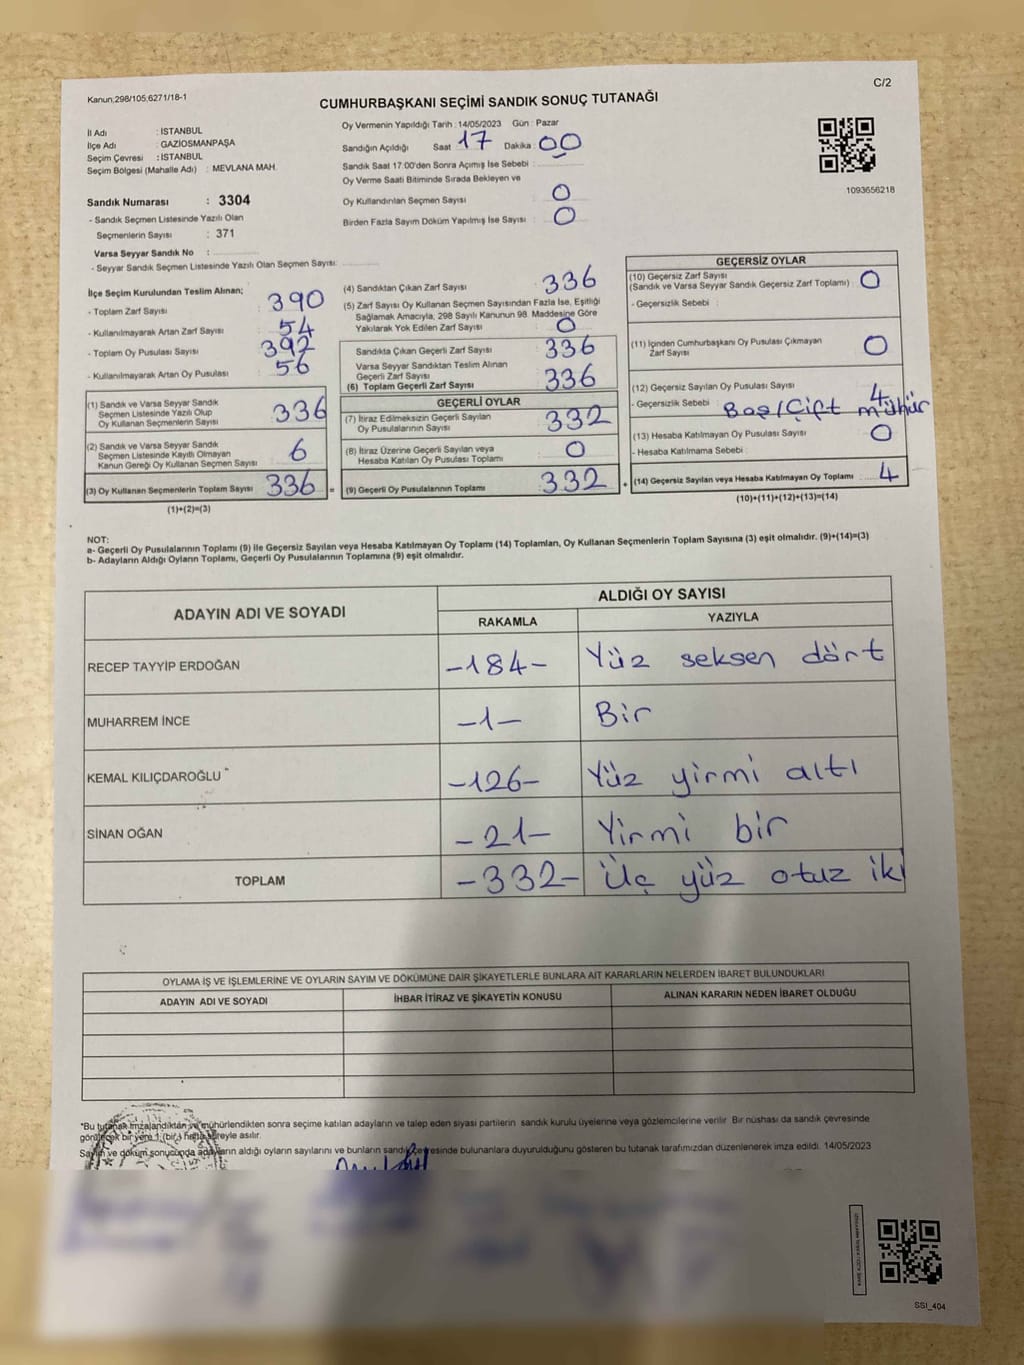 Kanun;298/105;6271/18-1
C/2
CUMHURBAŞKANI SEÇİMİ SANDIK SONUÇ TUTANAĞI
İl Adı : İSTANBUL
İlçe Adı : GAZİOSMANPAŞA
Seçim Çevresi : İSTANBUL
Seçim Bölgesi (Mahalle Adı) : MEVLANA MAH.
Sandık Numarası : 3304
- Sandık Seçmen Listesinde Yazılı Olan
Seçmenlerin Sayısı : 371
Varsa Seyyar Sandık No :
- Seyyar Sandık Seçmen Listesinde Yazılı Olan Seçmen Sayısı:
Oy Vermenin Yapıldığı Tarih : 14/05/2023 Gün : Pazar
Sandığın Açıldığı Saat 17 Dakika : 00
Sandık Saat 17:00'den Sonra Açımış İse Sebebi :
Oy Verme Saati Bitiminde Sırada Bekleyen ve
Oy Kullandırılan Seçmen Sayısı : 0
Birden Fazla Sayım Döküm Yapılmış İse Sayısı : 0
1093656218
İlçe Seçim Kurulundan Teslim Alınan;
- Toplam Zarf Sayısı : 390
- Kullanılmayarak Artan Zarf Sayısı : 54
- Toplam Oy Pusulası Sayısı : 392
- Kullanılmayarak Artan Oy Pusulası : 56
(1) Sandık ve Varsa Seyyar Sandık
Seçmen Listesinde Yazılı Olup
Oy Kullanan Seçmenlerin Sayısı : 336
(2) Sandık ve Varsa Seyyar Sandık
Seçmen Listesinde Kayıtlı Olmayan
Kanun Gereği Oy Kullanan Seçmen Sayısı : 6
(3) Oy Kullanan Seçmenlerin Toplam Sayısı : 336 =
(1)+(2)=(3)
(4) Sandıktan Çıkan Zarf Sayısı : 336
(5) Zarf Sayısı Oy Kullanan Seçmen Sayısından Fazla İse, Eşitliği
Sağlamak Amacıyla, 298 Sayılı Kanunun 98. Maddesine Göre
Yakılarak Yok Edilen Zarf Sayısı : 0
Sandıkta Çıkan Geçerli Zarf Sayısı : 336
Varsa Seyyar Sandıktan Teslim Alınan
Geçerli Zarf Sayısı :
(6) Toplam Geçerli Zarf Sayısı : 336
GEÇERLİ OYLAR
(7) İtiraz Edilmeksizin Geçerli Sayılan
Oy Pusulalarının Sayısı : 332
(8) İtiraz Üzerine Geçerli Sayılan veya
Hesaba Katılan Oy Pusulası Toplamı : 0
(9) Geçerli Oy Pusulalarının Toplamı : 332 +
GEÇERSİZ OYLAR
(10) Geçersiz Zarf Sayısı
(Sandık ve Varsa Seyyar Sandık Geçersiz Zarf Toplamı) : 0
- Geçersizlik Sebebi :
(11) İçinden Cumhurbaşkanı Oy Pusulası Çıkmayan
Zarf Sayısı : 0
(12) Geçersiz Sayılan Oy Pusulası Sayısı : 4
- Geçersizlik Sebebi : Boş/Çift mühür
(13) Hesaba Katılmayan Oy Pusulası Sayısı : 0
- Hesaba Katılmama Sebebi :
(14) Geçersiz Sayılan veya Hesaba Katılmayan Oy Toplamı : 4
(10)+(11)+(12)+(13)=(14)
NOT:
a- Geçerli Oy Pusulalarının Toplamı (9) ile Geçersiz Sayılan veya Hesaba Katılmayan Oy Toplamı (14) Toplamları, Oy Kullanan Seçmenlerin Toplam Sayısına (3) eşit olmalıdır. (9)+(14)=(3)
b- Adayların Aldığı Oyların Toplamı, Geçerli Oy Pusulalarının Toplamına (9) eşit olmalıdır.
ADAYIN ADI VE SOYADI
ALDIĞI OY SAYISI
RAKAMLA YAZIYLA
RECEP TAYYİP ERDOĞAN -184- Yüz seksen dört
MUHARREM İNCE -1- Bir
KEMAL KILIÇDAROĞLU -126- Yüz yirmi altı
SİNAN OĞAN -21- Yirmi bir
TOPLAM -332- Üç yüz otuz iki
OYLAMA İŞ VE İŞLEMLERİNE VE OYLARIN SAYIM VE DÖKÜMÜNE DAİR ŞİKAYETLERLE BUNLARA AİT KARARLARIN NELERDEN İBARET BULUNDUKLARI
ADAYIN ADI VE SOYADI İHBAR İTİRAZ VE ŞİKAYETİN KONUSU ALINAN KARARIN NEDEN İBARET OLDUĞU
*Bu tutanak imzalandıktan ve mühürlendikten sonra seçime katılan adayların ve talep eden siyasi partilerin sandık kurulu üyelerine veya gözlemcilerine verilir. Bir nüshası da sandık çevresinde
görülecek bir yere 1 (bir) hafta süreyle asılır.
Sayım ve döküm sonucunda adayların aldığı oyların sayılarını ve bunların sandık çevresinde bulunanlara duyurulduğunu gösteren bu tutanak tarafımızdan düzenlenerek imza edildi. 14/05/2023
SSI_404